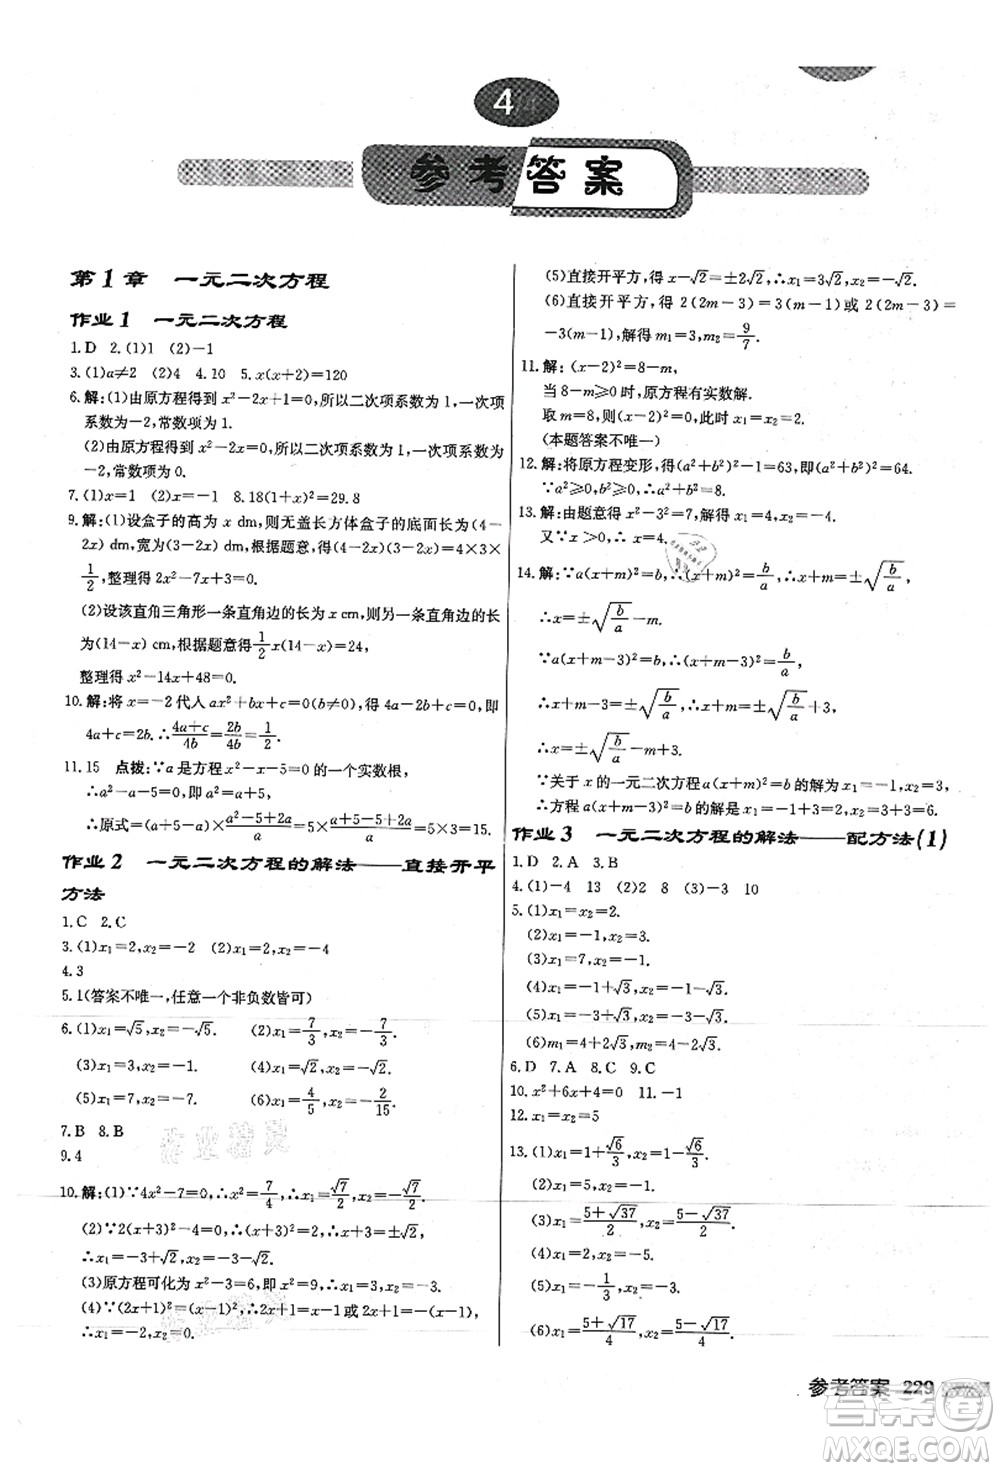 4
参考答案
第1章 一元二次方程
作业1 一元二次方程
1.D 2.(1)1 (2)-1
3.(1)a≠2 (2)4 4.10 5.x(x+2)=120
6.解:(1)由原方程得到 x²-2x+1=0,所以二次项系数为1,一次项
系数为-2,常数项为1.
(2)由原方程得到 x²-2x=0,所以二次项系数为1,一次项系数为
-2,常数项为0.
7.(1)x=1 (2)x=-1 8.18(1+x)²=29.8
9.解:(1)设盒子的高为 x dm,则无盖长方体盒子的底面长为(4-
2x) dm,宽为(3-2x) dm.根据题意,得(4-2x)(3-2x)=4×3×
1/2,整理得 2x²-7x+3=0.
(2)设该直角三角形一条直角边的长为 x cm,则另一条直角边长为
(14-x) cm,根据题意得 1/2 x(14-x)=24,
整理得 x²-14x+48=0.
10.解:将 x=-2代入 ax²+bx+c=0(b≠0),得 4a-2b+c=0,即
4a+c=2b.∴(4a+c)/4b=2b/4b=1/2.
11.15 点拨:∵a 是方程 x²-x-5=0的一个实数根,
∴a²-a-5=0,∴a²=a+5,
∴原式=(a+5-a)×(a²-5+2a)/a=5×(a+5-5+2a)/a=5×3=15.
作业2 一元二次方程的解法——直接开平
方法
1.C 2.C
3.(1)x₁=2,x₂=-2 (2)x₁=2,x₂=-4
4.3
5.1(答案不唯一,任意一个非负数皆可)
6.(1)x₁=√5,x₂=-√5. (2)x₁=7/3,x₂=-7/3.
(3)x₁=7,x₂=-1. (4)x₁=√2,x₂=-√2.
(5)x₁=2,x₂=-7. (6)x₁=4/5,x₂=-2/15.
7.B 8.B
9.4
10.解:(1)∵4x²-7=0,∴x²=7/4,∴x₁=√7/2,x₂=-√7/2.
(2)∵2(x+3)²-4=0,∴(x+3)²=2,∴x+3=±√2,
∴x₁=-3+√2,x₂=-3-√2.
(3)原方程可化为 x²-3=6,∴x²=9,∴x₁=3,x₂=-3.
(4)∵(2x+1)²=(x-1)²,∴2x+1=x-1或2x+1=-(x-1),
∴x₁=-2,x₂=0.
(5)直接开平方,得 x-√2=±2√2,∴x₁=3√2,x₂=-√2.
(6)直接开平方,得 2(2m-3)=3(m-1)或 2(2m-3)=
-3(m-1),解得 m₁=3,m₂=9/7.
11.解:(x-2)²=8-m,
当 8-m≥0时,原方程有实数解.
取 m=8,则(x-2)²=0,此时 x₁=x₂=2.
(本题答案不唯一)
12.解:将原方程变形,得(a²+b²)²-1=63,即(a²+b²)²=64.
∵a²≥0,b²≥0,∴a²+b²=8.
13.解:由题意得 x²-3²=7,解得 x=±4.
又∵x>0,∴x=4.
14.解:∵a(x+m)²=b,∴(x+m)²=b/a,∴x+m=±√(b/a),
∴x=±√(b/a)-m.
∵a(x+m-3)²=b,∴(x+m-3)²=b/a,
∴x+m-3=±√(b/a),∴x+m=±√(b/a)+3,
∴x=±√(b/a)-m+3.
∵关于 x 的一元二次方程 a(x+m)²=b 的解为 x₁=-1,x₂=3,
∴方程 a(x+m-3)²=b 的解是 x₁=-1+3=2,x₂=3+3=6.
作业3 一元二次方程的解法——配方法(1)
1.D 2.A 3.B
4.(1)-4 13 (2)2 8 (3)-3 10
5.(1)x₁=x₂=2.
(2)x₁=1,x₂=3.
(3)x₁=7,x₂=-1.
(4)x₁=-1+√3,x₂=-1-√3.
(5)x₁=1+√3,x₂=1-√3.
(6)m₁=4+2√3,m₂=4-2√3.
6.D 7.A 8.C 9.C
10.x²+6x+4=0 11.-1
12.x₁=x₂=5
13.(1)x₁=1+√6/3,x₂=1-√6/3.
(2)x₁=5,x₂=-1.
(3)x₁=(5+√37)/2,x₂=(5-√37)/2.
(4)x₁=0,x₂=4.
(5)x₁=-1/3,x₂=3.
(6)x₁=(5+√17)/4,x₂=(5-√17)/4.
参考答案 229
作业精灵
答案圈
MXQE.COM